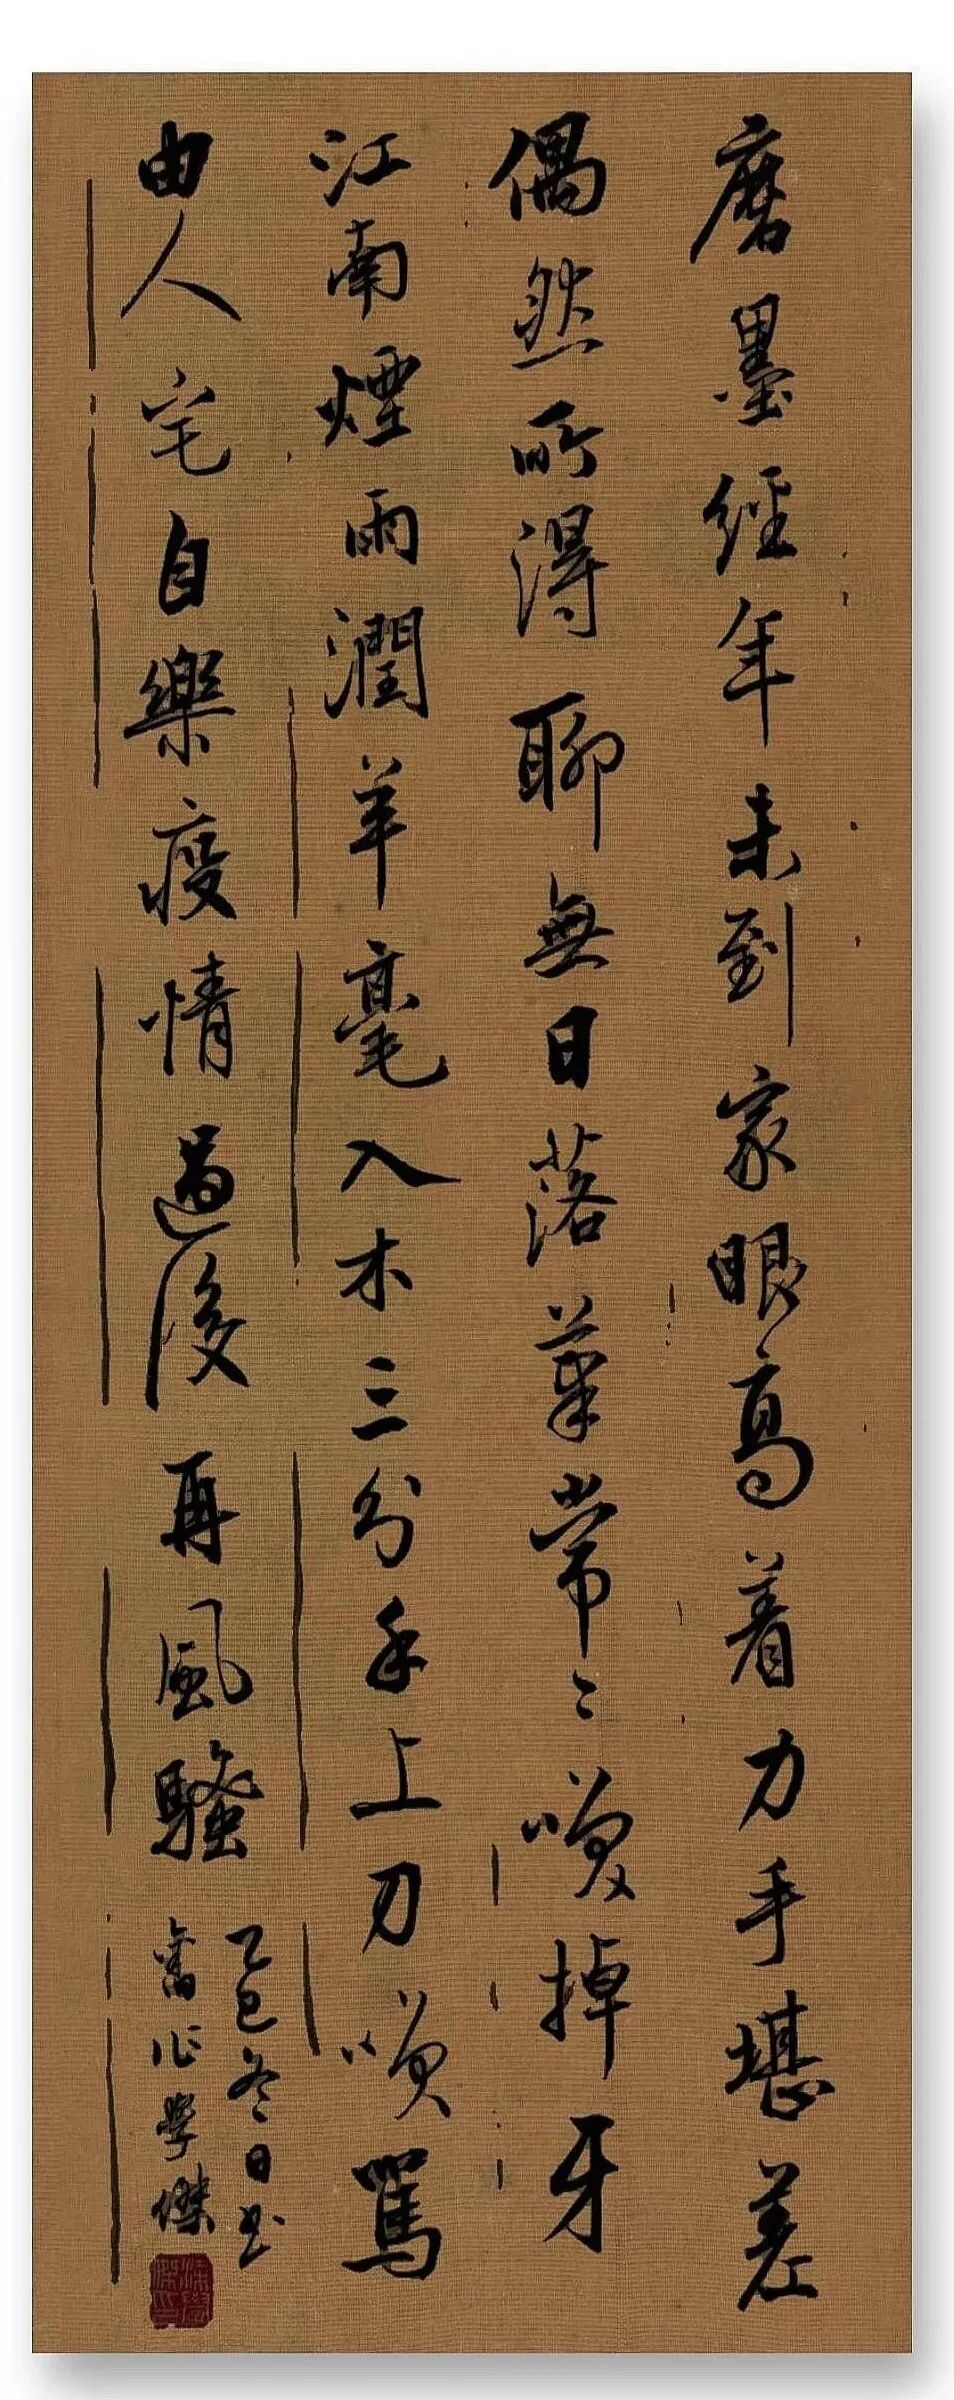 磨墨經年未到家眼高着力手堪差
偶然所得聊無日落筆常〻笑掉牙
江南煙雨潤羊毫入木三分手上刀笑罵
由人宅自樂疫情過後再風騷
乙巳冬日书
舊作學傑